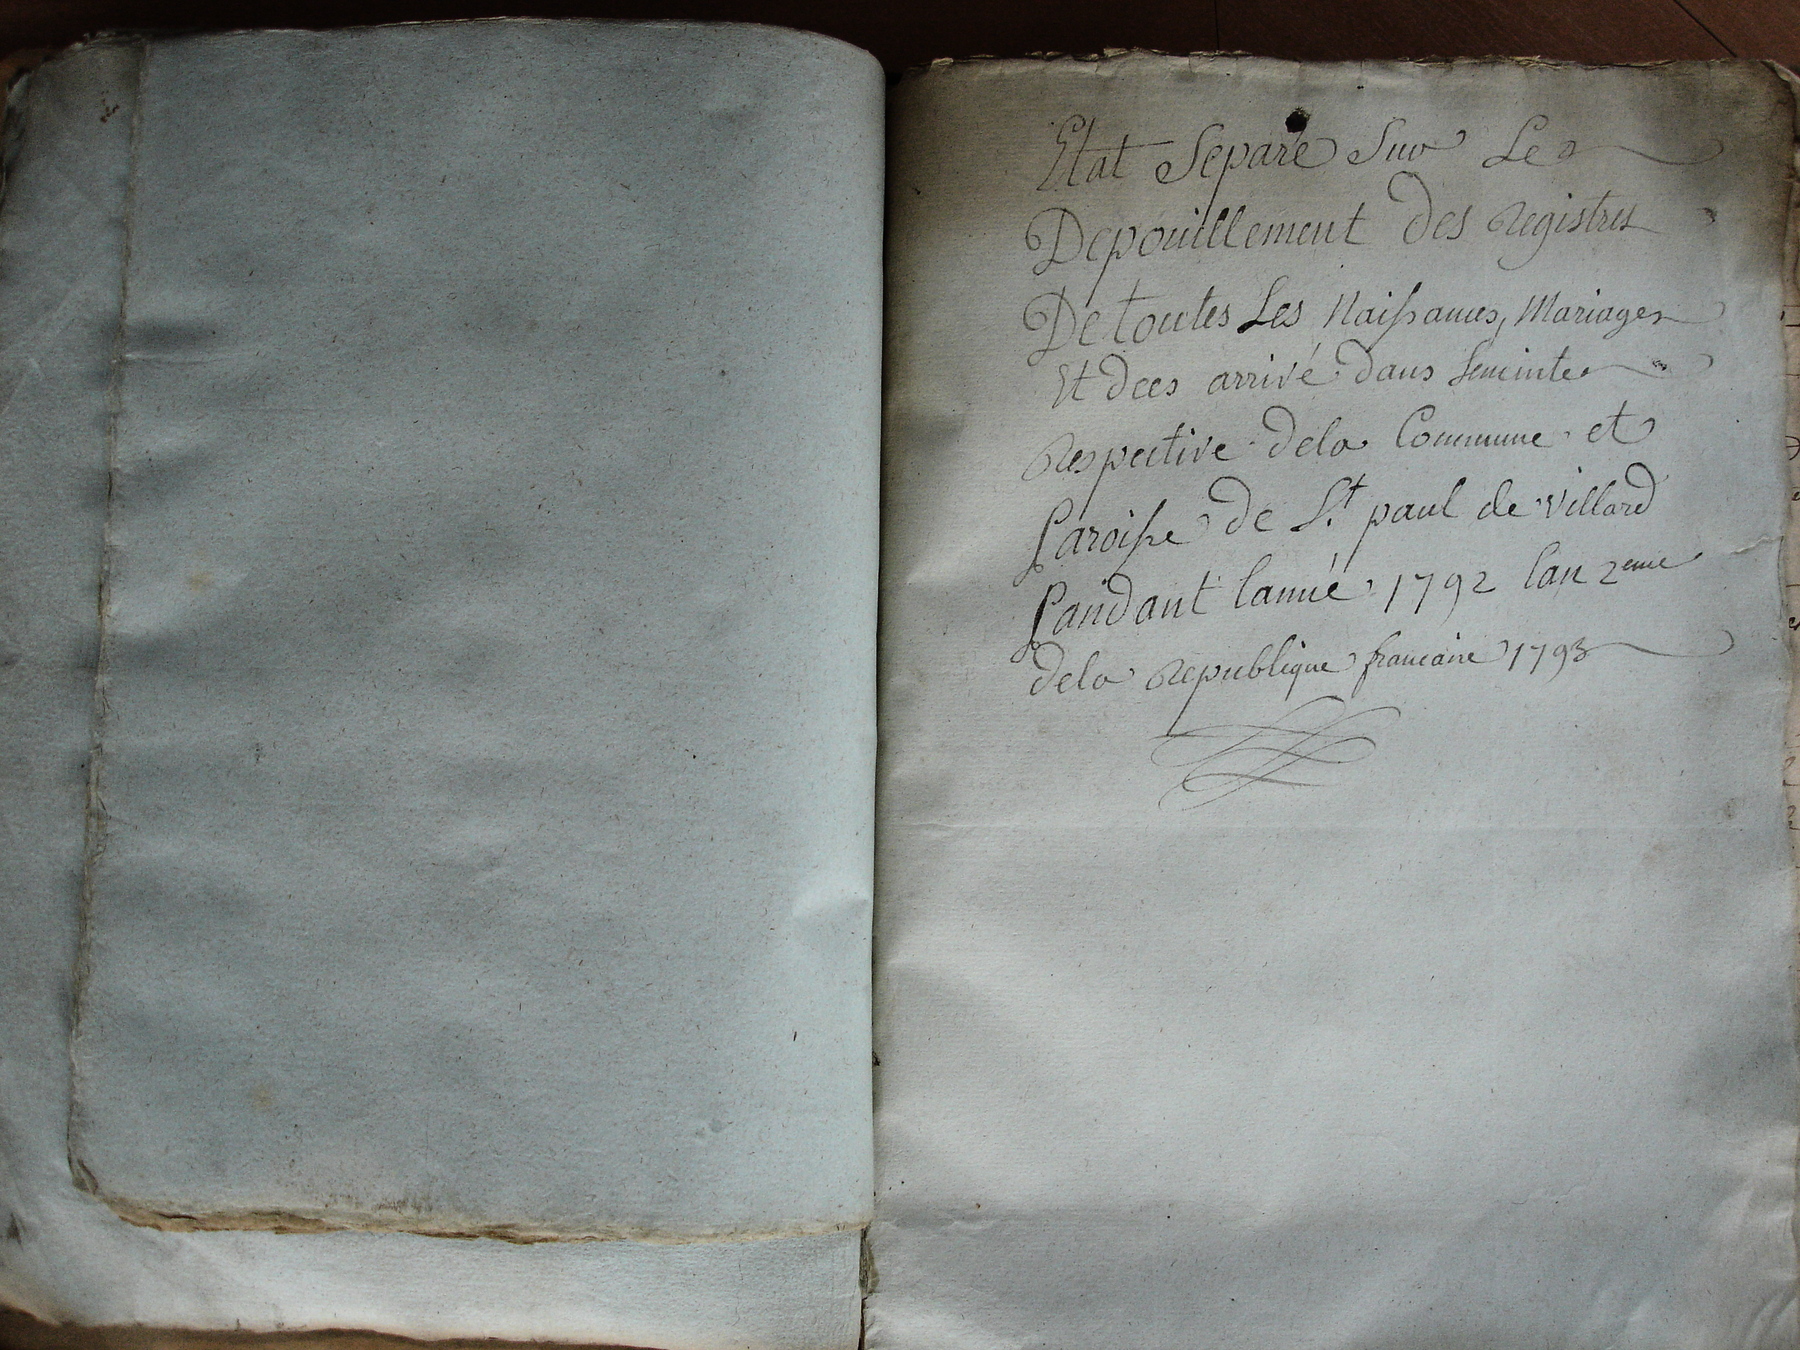 Etat Separé Sur Le
Depouillement des Registres
De toutes Les Naissances, Mariages
Et deces arrivé dans Lenceinte
Respective dela Commune et
Paroisse de St paul de villard
Pandant lanné 1792 lan 2eme
dela Republique francaise 1793